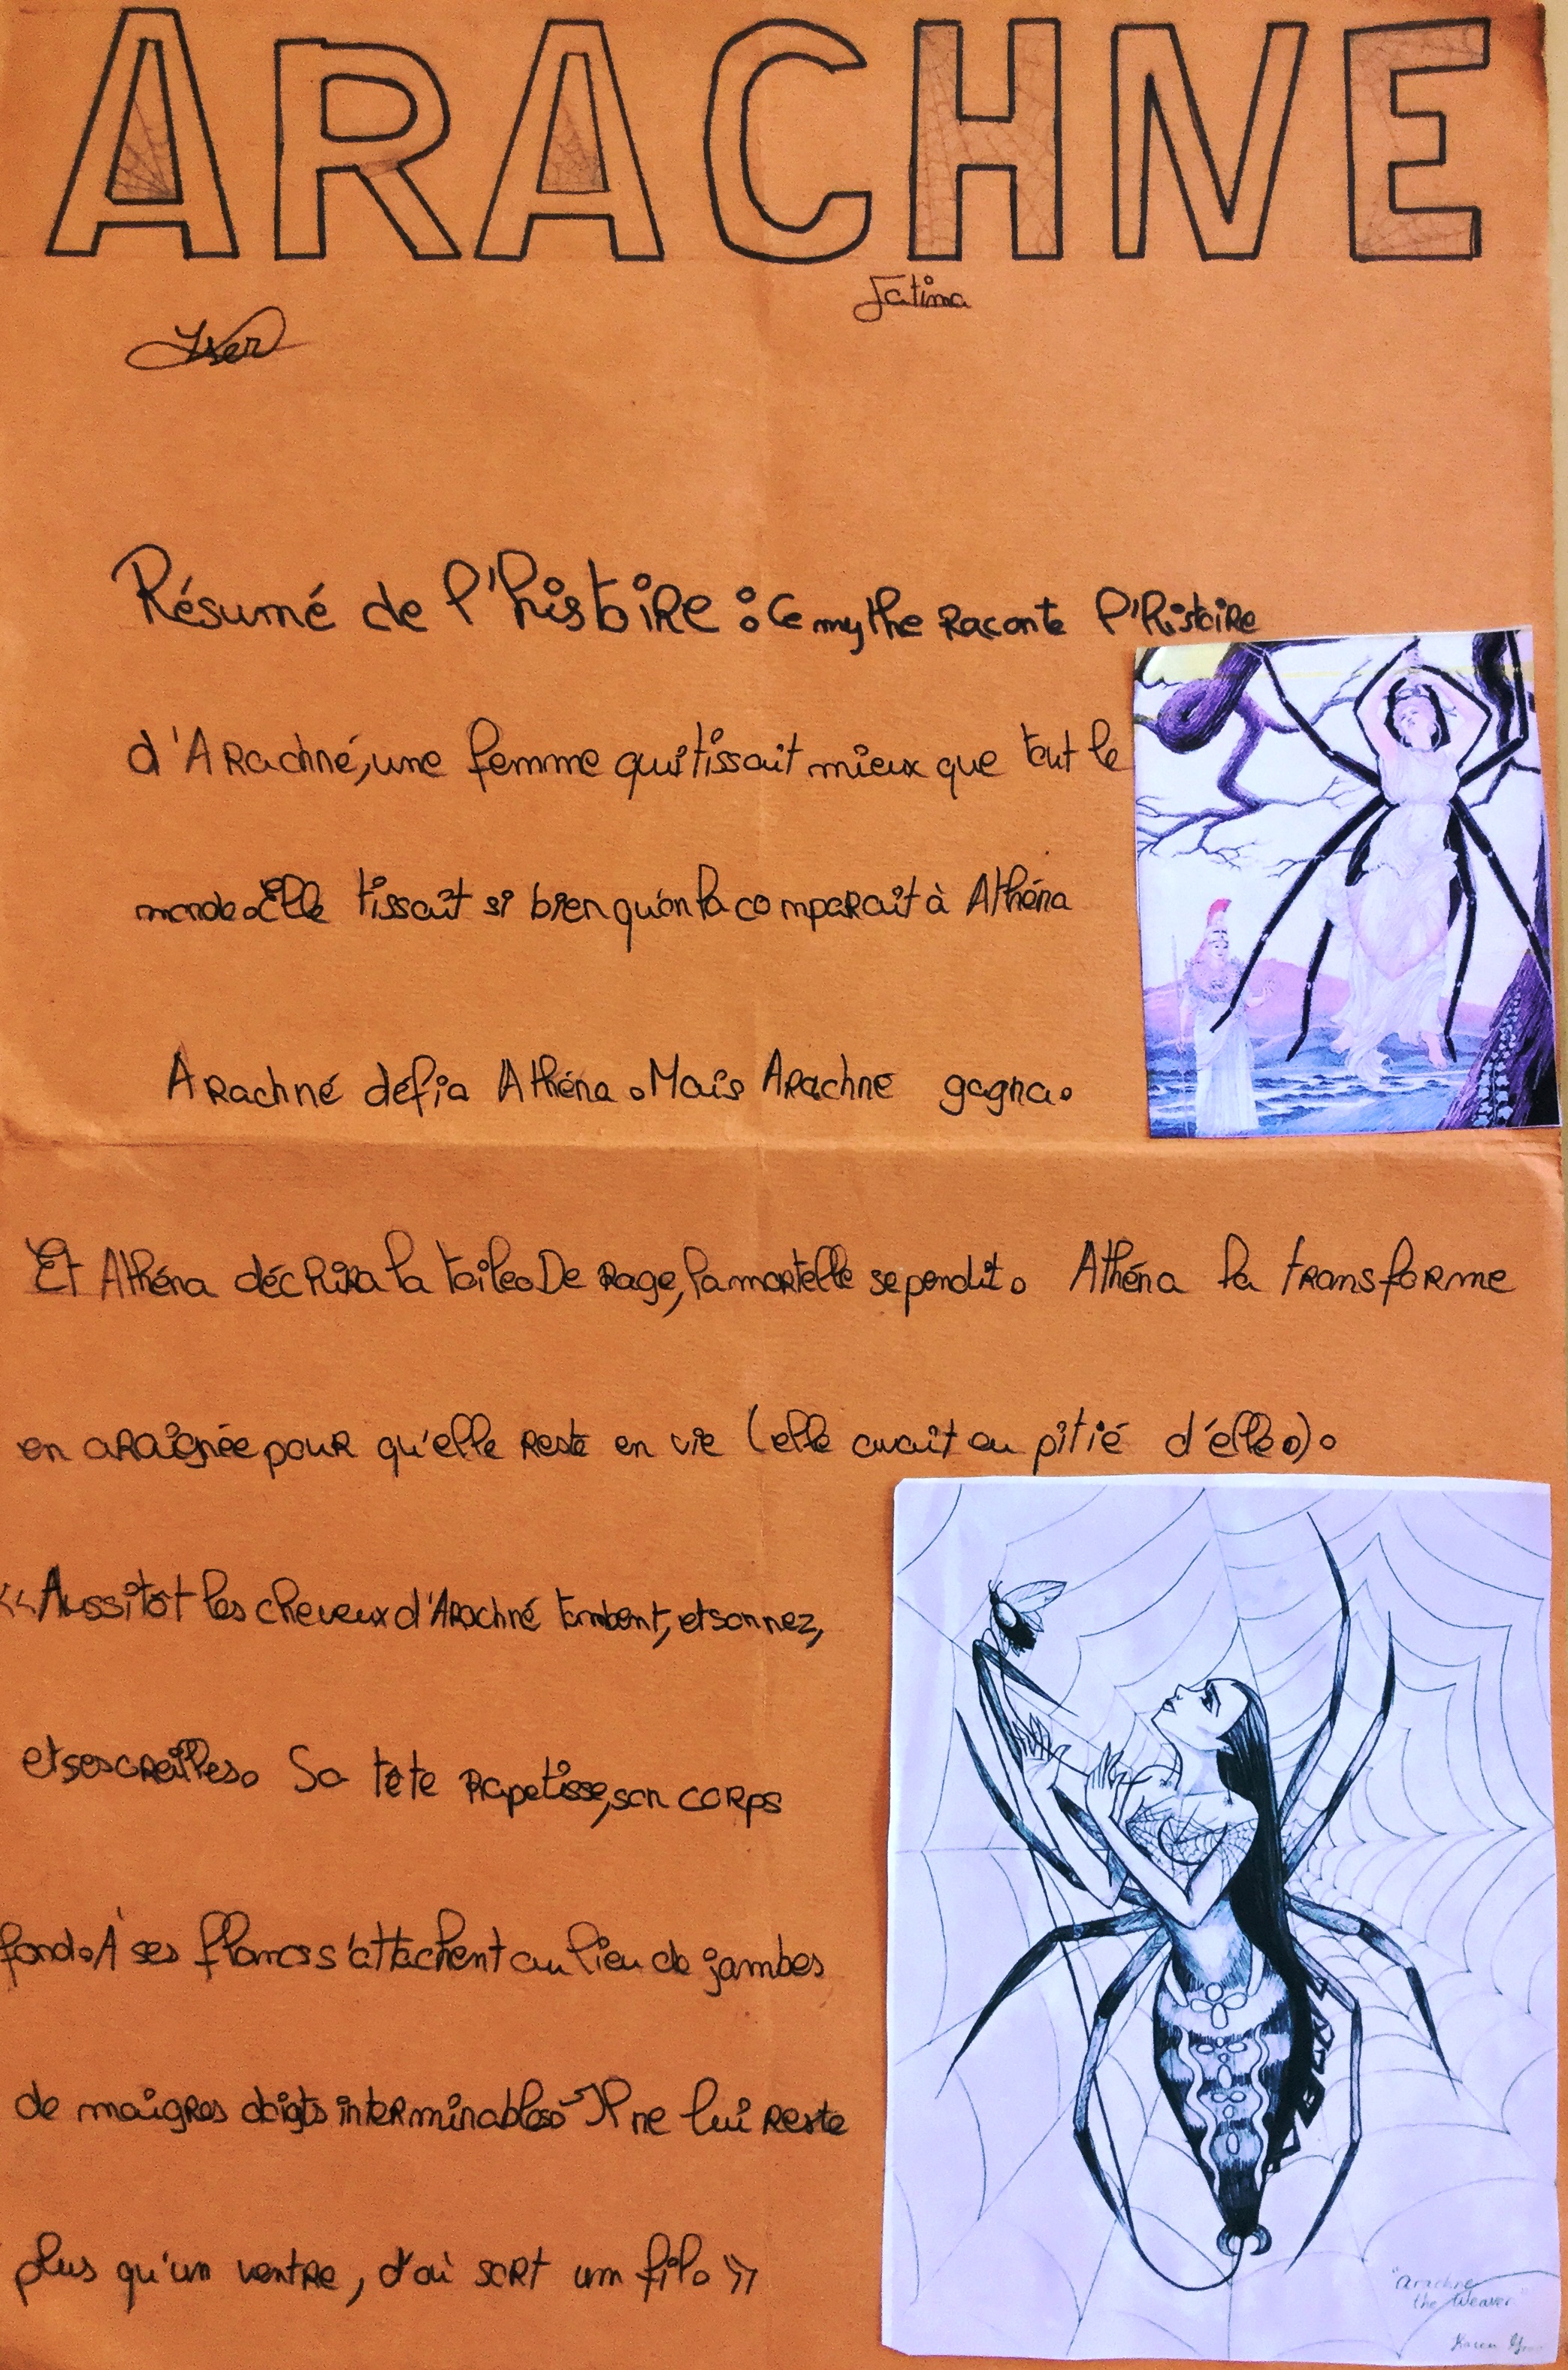 ARACHNE
Fatima
Iser
Résumé de l'histoire : Ce mythe raconte l'histoire
d'Arachné, une femme qui tissait mieux que tout le
monde. Elle tissait si bien qu'on la comparait à Athéna
Arachné défia Athéna. Mais Arachné gagna.
Et Athéna déchira la toile. De rage, la mortelle se pendit. Athéna la transforme
en araignée pour qu'elle reste en vie (elle avait eu pitié d'elle.).
«Aussitôt les cheveux d'Arachné tombent, et son nez,
et ses oreilles. Sa tête rapetisse, son corps
fond. À ses flancs s'attachent au lieu de jambes
de maigres doigts interminables. Il ne lui reste
plus qu'un ventre, d'où sort um fil. »
"Arachne
the Weaver"
Karen